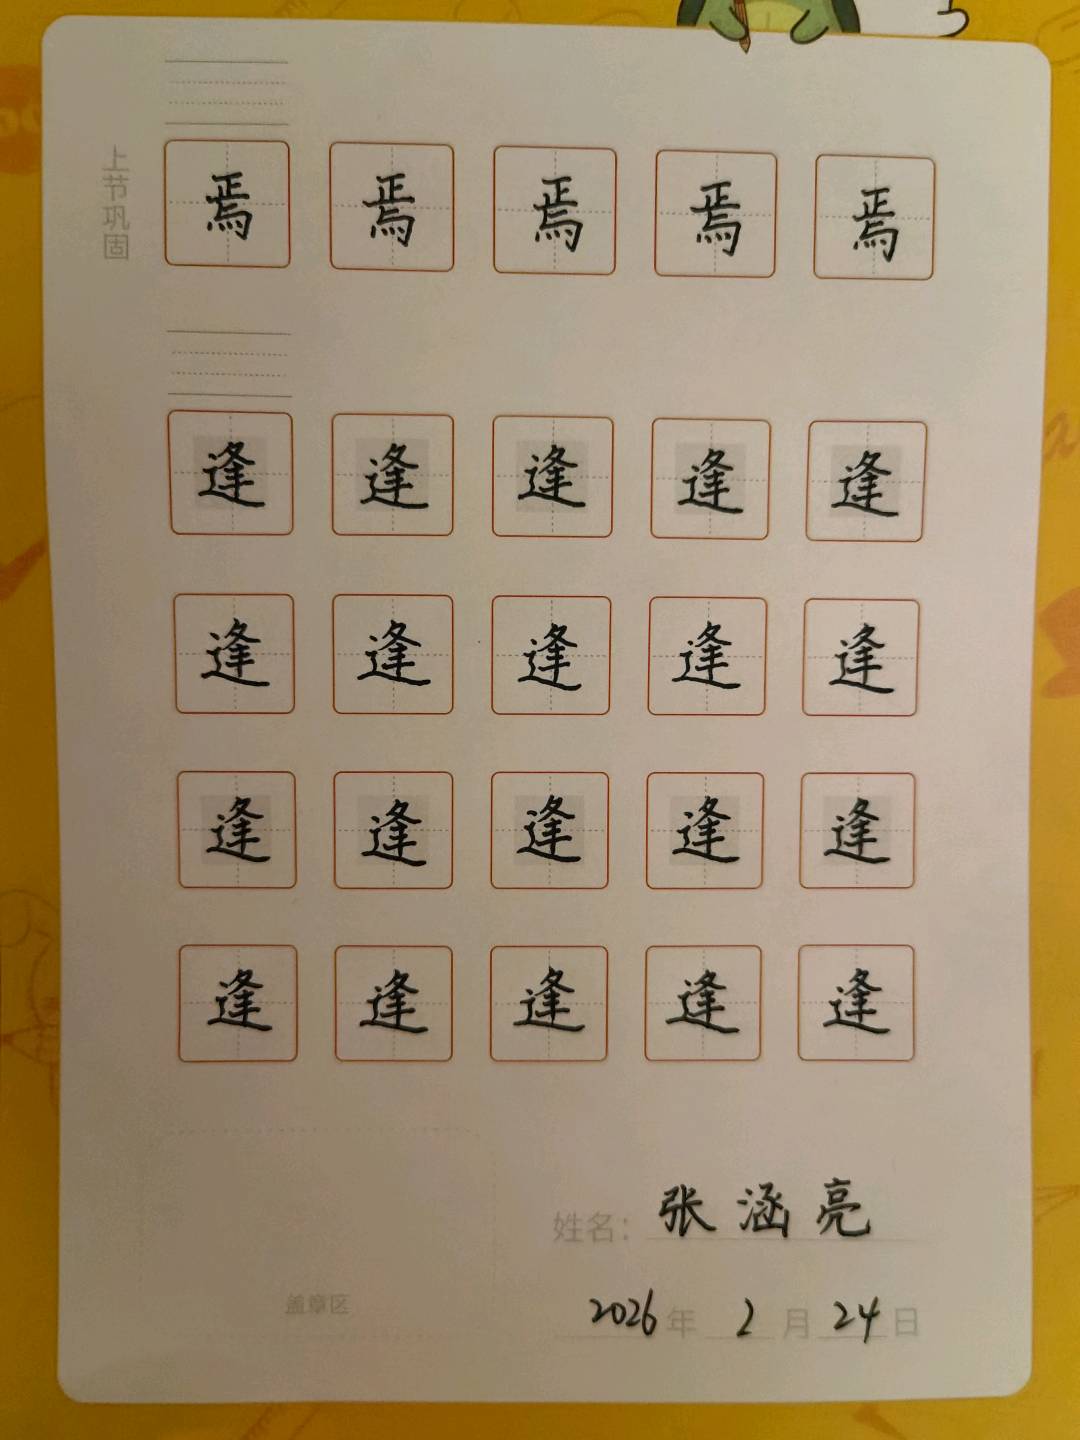 上节巩固
焉 焉 焉 焉 焉
逢 逢 逢 逢 逢
逢 逢 逢 逢 逢
逢 逢 逢 逢 逢
逢 逢 逢 逢 逢
姓名：张涵亮
盖章区
2026年2月24日